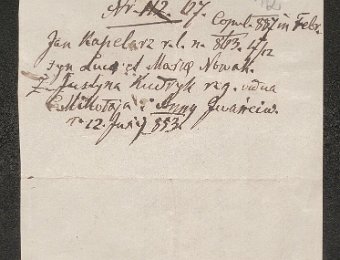 Nr. 112. 67.
Copul. 857 in Febr
Jan Kapelarz r.l. n. 8/13. 4/12
syn Luc et Maria Nowak.
Z Justyna Kudryk r.g. vidua
Mikołaja i Anny Iwańciw.
n. 12. Julij 853.